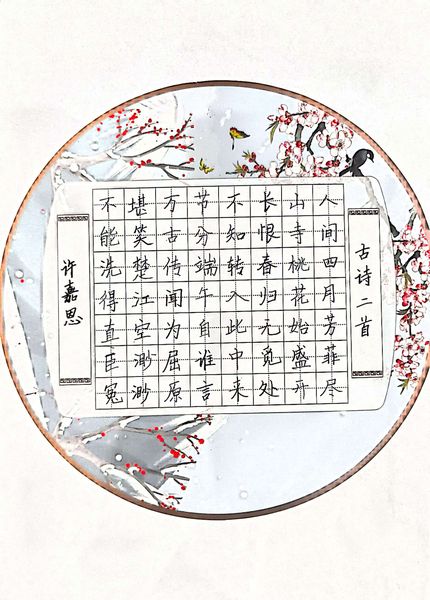 古诗二首
人间四月芳菲尽
山寺桃花始盛开
长恨春归无觅处
不知转入此中来
节分端午自谁言
万古传闻为屈原
堪笑楚江空渺渺
不能洗得直臣冤
许嘉恩